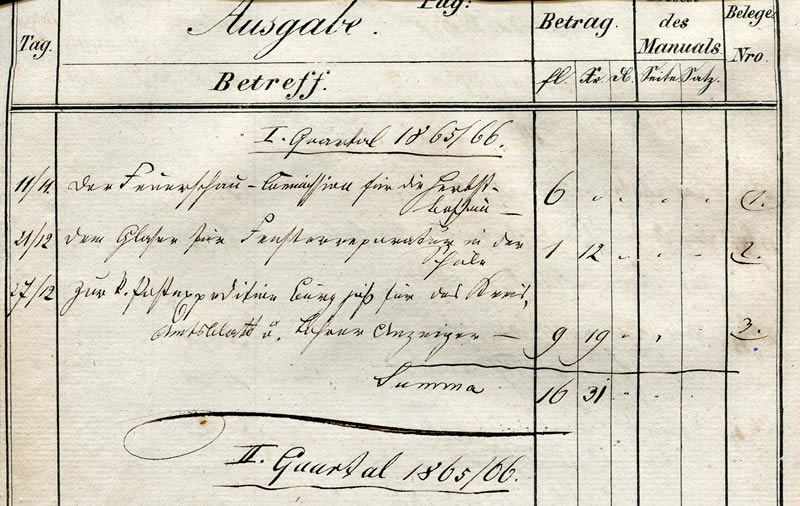 Tag:
Ausgabe.
Betrag.
des
Belege
Tag.
Manuals
Nro
Betreff.
fl. Xr. Seite Satz.
I. Quartal 1865/66.
11/11. Der Feuerschau-Commission für die Herbst-
beschau — 6 1.
21/12 Dem Glaser für Fensterreparatur in der
Schule 1 12 2.
27/12 Zur k. Postexpedition für das Kreis-
Amtsblatt u. Lohrer Anzeiger — 9 19 3.
Summa 16 31
II. Quartal 1865/66.